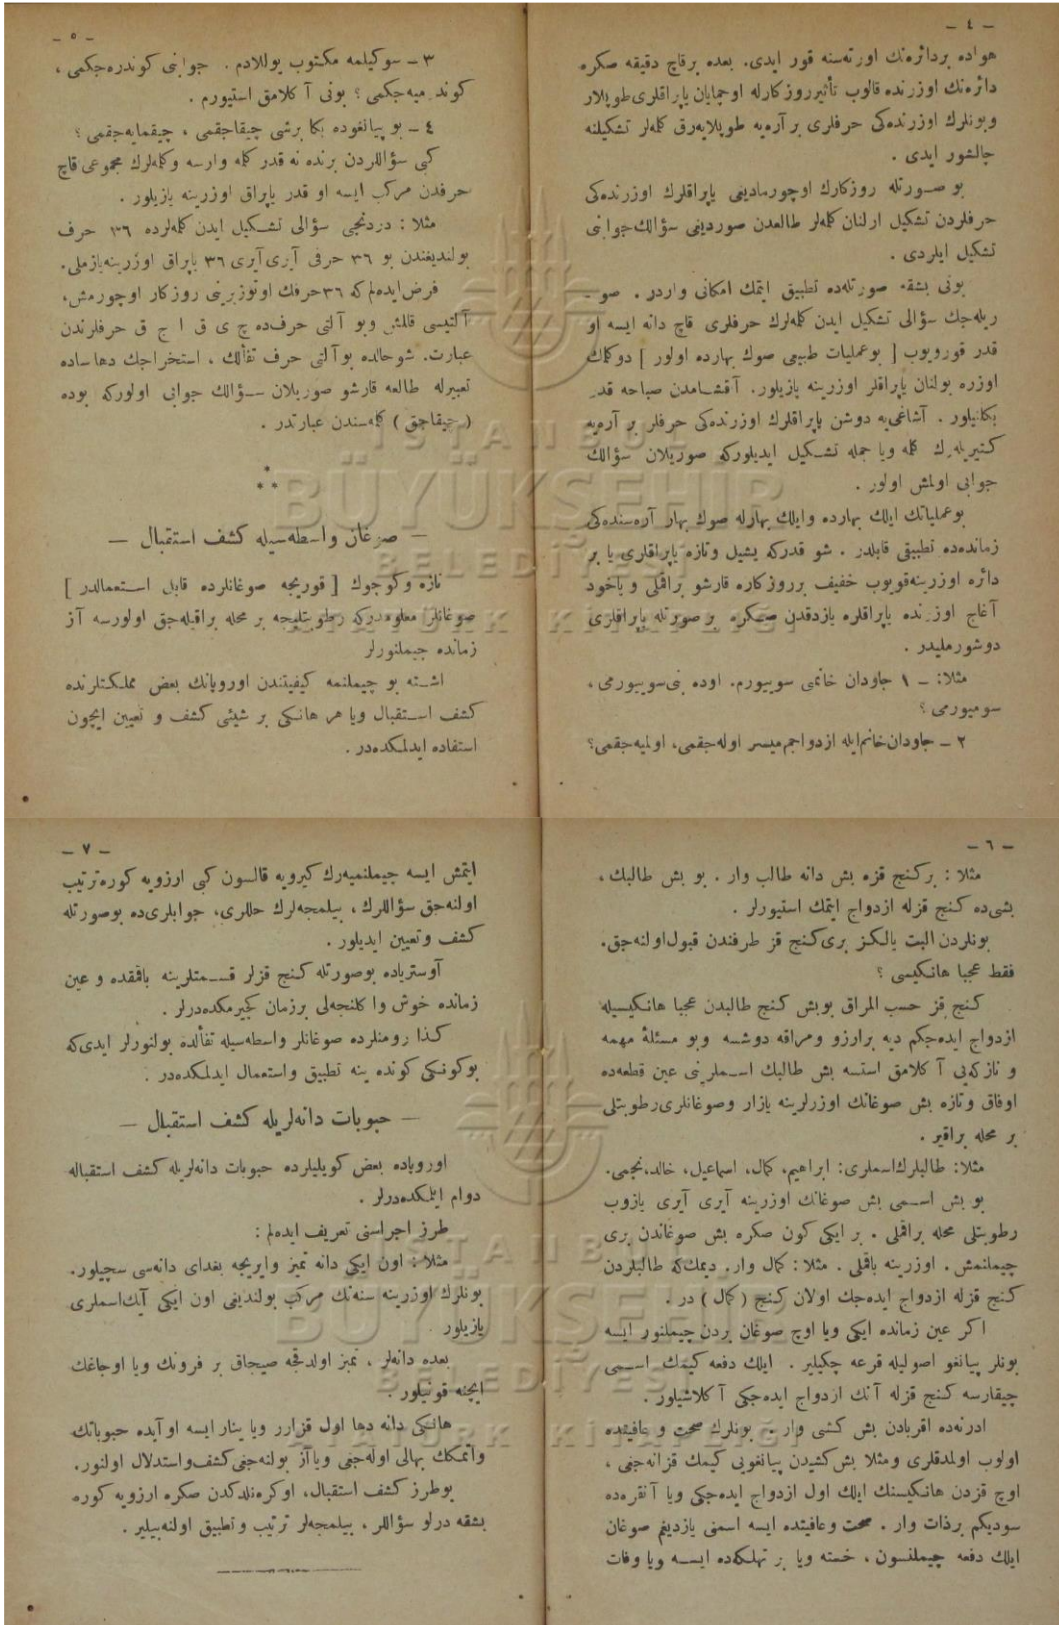 — ٤ —
هواده بردائره‌نك اورته‌سنه قور ایدی. بعده برقاچ دقیقه صكره
دائره‌نك اوزرنده قالوب تأثیرروزكارله اوچمایان یاپراقلری طوپلار
وبونلرك اوزرنده‌كی حرفلری بر آره‌یه طوپلایه‌رق كله‌لر تشكیلنه
چالشور ایدی .
بو صورتله روزكارك اوچورمادیغی یاپراقلرك اوزرنده‌كی
حرفلردن تشكیل اولنان كله‌لر طالعدن صوردیغی سؤالك جوابنی
تشكیل ایلردی .
بونی بشقه صورتله‌ده تطبیق ایتمك امكانی واردر . صو ـ
ریله‌جك سؤالی تشكیل ایدن كله‌لرك حرفلری قاچ دانه ایسه او
قدر قوروبوب [ بوعملیات طبیعی صوك بهارده اولور ] دوكمك
اوزره بولنان یاپراقلر اوزرینه یازیلور. آقشامدن صباحه قدر
بكلنیلور . آشاغی‌یه دوشن یاپراقلرك اوزرنده‌كی حرفلر بر آره‌یه
كتیریله‌رك كله ویا جمله تشكیل ایدیلوركه صوریلان سؤالك
جوابی اولمش اولور .
بوعملیاتك ایلك بهارده وایلك بهارله صوك بهار آره‌سنده‌كی
زمانده‌ده تطبیقی قابلدر . شو قدركه یشیل وتازه یاپراقلری یا بر
دائره اوزرینه‌قویوب خفیف برروزكاره قارشو براقملی ویاخود
آغاج اوزرنده یاپراقلره یازدقدن صكره بر صورتله یاپراقلری
دوشورملیدر .
مثلا: — ١ جاودان خانمی سویورم. اوده بنی سویورمی ،
سومیورمی ؟
٢ — جاودان‌خانم‌ایله ازدواجم میسر اوله‌جقمی، اولمیه‌جقمی؟
— ٥ —
٣ — سوكیلمه مكتوب یوللادم . جوابنی كوندره‌جكمی ،
كوندرمیه‌جكمی ؟ بونی آ كلامق استیورم .
٤ — بو پیانغوده بكا برشی چیقاجقمی ، چیقمایه‌جقمی ؟
كبی سؤاللردن برنده نه قدر كله وارسه وكله‌لرك مجموعی قاچ
حرفدن مركب ایسه او قدر یاپراق اوزرینه یازیلور .
مثلا : دردنجی سؤالی تشكیل ایدن كله‌لرده ٣٦ حرف
بولندیغندن بو ٣٦ حرفی آیری آیری ٣٦ یاپراق اوزرینه‌یازملی.
فرض ایده‌لم كه ٣٦حرفك اوتوزبرینی روزكار اوچورمش،
آلتیسی قالمش وبو آلتی حرف‌ده چ ی ق ا ج ق حرفلرندن
عبارت. شوحالده بوآلتی حرف تفألك ، استخراجك دهاساده
تعبیرله طالعه قارشو صوریلان سؤالك جوابی اولوركه بوده
( چیقاجق ) كله‌سندن عبارتدر .
*
* *
— صوغان واسطه‌سیله كشف استقبال —
تازه وكوچوك [ قوریجه صوغانلرده قابل استعمالدر ]
صوغانلر معلومدركه رطوبتلیجه بر محله براقیله‌جق اولورسه آز
زمانده چیملنورلر
اشته بو چیملنمه كیفیتندن اوروپانك بعض مملكتلرنده
كشف استقبال ویا هر هانكی بر شیئی كشف و تعیین ایچون
استفاده ایدلمكده‌در .
— ٦ —
مثلا : بركنج قزه بش دانه طالب وار . بو بش طالبك ،
بشی‌ده كنج قزله ازدواج ایتمك استیورلر .
بونلردن البت یالكز بری كنج قز طرفندن قبول‌اولنه‌جق.
فقط عجبا هانكیسی ؟
كنج قز حسب المراق بوبش كنج طالبدن عجبا هانكیسیله
ازدواج ایده‌جكم دیه برارزو ومراقه دوشسه وبو مسئلهٔ مهمه
و نازكه‌یی آ كلامق استسه بش طالبك اسملرینی عین قطعه‌ده
اوفاق وتازه بش صوغانك اوزرلرینه یازار وصوغانلری رطوبتلی
بر محله براقیر .
مثلا: طالبلرك‌اسملری: ابراهیم، كمال، اسماعیل، خالد، نجمی.
بو بش اسمی بش صوغانك اوزرینه آیری آیری یازوب
رطوبتلی محله براقملی . بر ایكی كون صكره بش صوغاندن بری
چیملنمش . اوزرینه باقملی . مثلا : كمال وار. دیمك‌كه طالبلردن
كنج قزله ازدواج ایده‌جك اولان كنج ( كمال ) در .
اكر عین زمانده ایكی ویا اوچ صوغان بردن چیملنور ایسه
بونلر پیانغو اصولیله قرعه چكیلیر . ایلك دفعه كیمك اسمی
چیقارسه كنج قزله آنك ازدواج ایده‌جكی آ كلاشیلور .
ادرنه‌ده اقربادن بش كشی وار . بونلرك صحت و عافیتده
اولوب اولمدقلری ومثلا بش كشیدن پیانغویی كیمك قزانه‌جغی ،
اوچ قزدن هانكیسنك ایلك اول ازدواج ایده‌جكی ویا آنقره‌ده
سودیكم برذات وار . صحت وعافیتده ایسه اسمنی یازدیغم صوغان
ایلك دفعه چیملنسون ، خسته ویا بر تهلكه‌ده ایسه ویا وفات
— ٧ —
ایتمش ایسه چیملنمیه‌رك كیرویه قالسون كبی ارزویه كوره‌ترتیب
اولنه‌جق سؤاللرك ، بیلمجه‌لرك حللری، جوابلری‌ده بوصورتله
كشف وتعیین ایدیلور .
آوستریاده بوصورتله كنج قزلر قسمتلرینه باقمقده و عین
زمانده خوش وا كلنجه‌لی برزمان كچیرمكده‌درلر .
كذا رومنلرده صوغانلر واسطه‌سیله تفألده بولنورلر ایدی‌كه
بوكونكی كونده ینه تطبیق واستعمال ایدلمكده‌در .
— حبوبات دانه‌لریله كشف استقبال —
اوروپاده بعض كویلیلرده حبوبات دانه‌لریله كشف استقباله
دوام ایتمكده‌درلر .
طرز اجراسنی تعریف ایده‌لم :
مثلا : اون ایكی دانه تمیز وایریجه بغدای دانه‌سی سچیلور.
بونلرك اوزرینه سنه‌نك مركب بولندیغی اون ایكی آیك‌اسملری
یازیلور
بعده دانه‌لر ، تمیز اولدقجه صیجاق بر فرونك ویا اوجاغك
ایچنه قونیلور .
هانكی دانه دها اول قزارر ویا ینار ایسه او آیده حبوباتك
واتمكك بهالی اوله‌جغی ویاآز بولنه‌جغی كشف‌واستدلال اولنور.
بوطرز كشف استقبال، اوكره‌نلدكدن صكره ارزویه كوره
بشقه درلو سؤاللر ، بیلمجه‌لر ترتیب وتطبیق اولنه‌بیلیر .
İSTANBUL
BÜYÜKŞEHİR
BELEDİYESİ
ATATÜRK KİTAPLIĞI
İSTANBUL
BÜYÜKŞEHİR
BELEDİYESİ
ATATÜRK KİTAPLIĞI